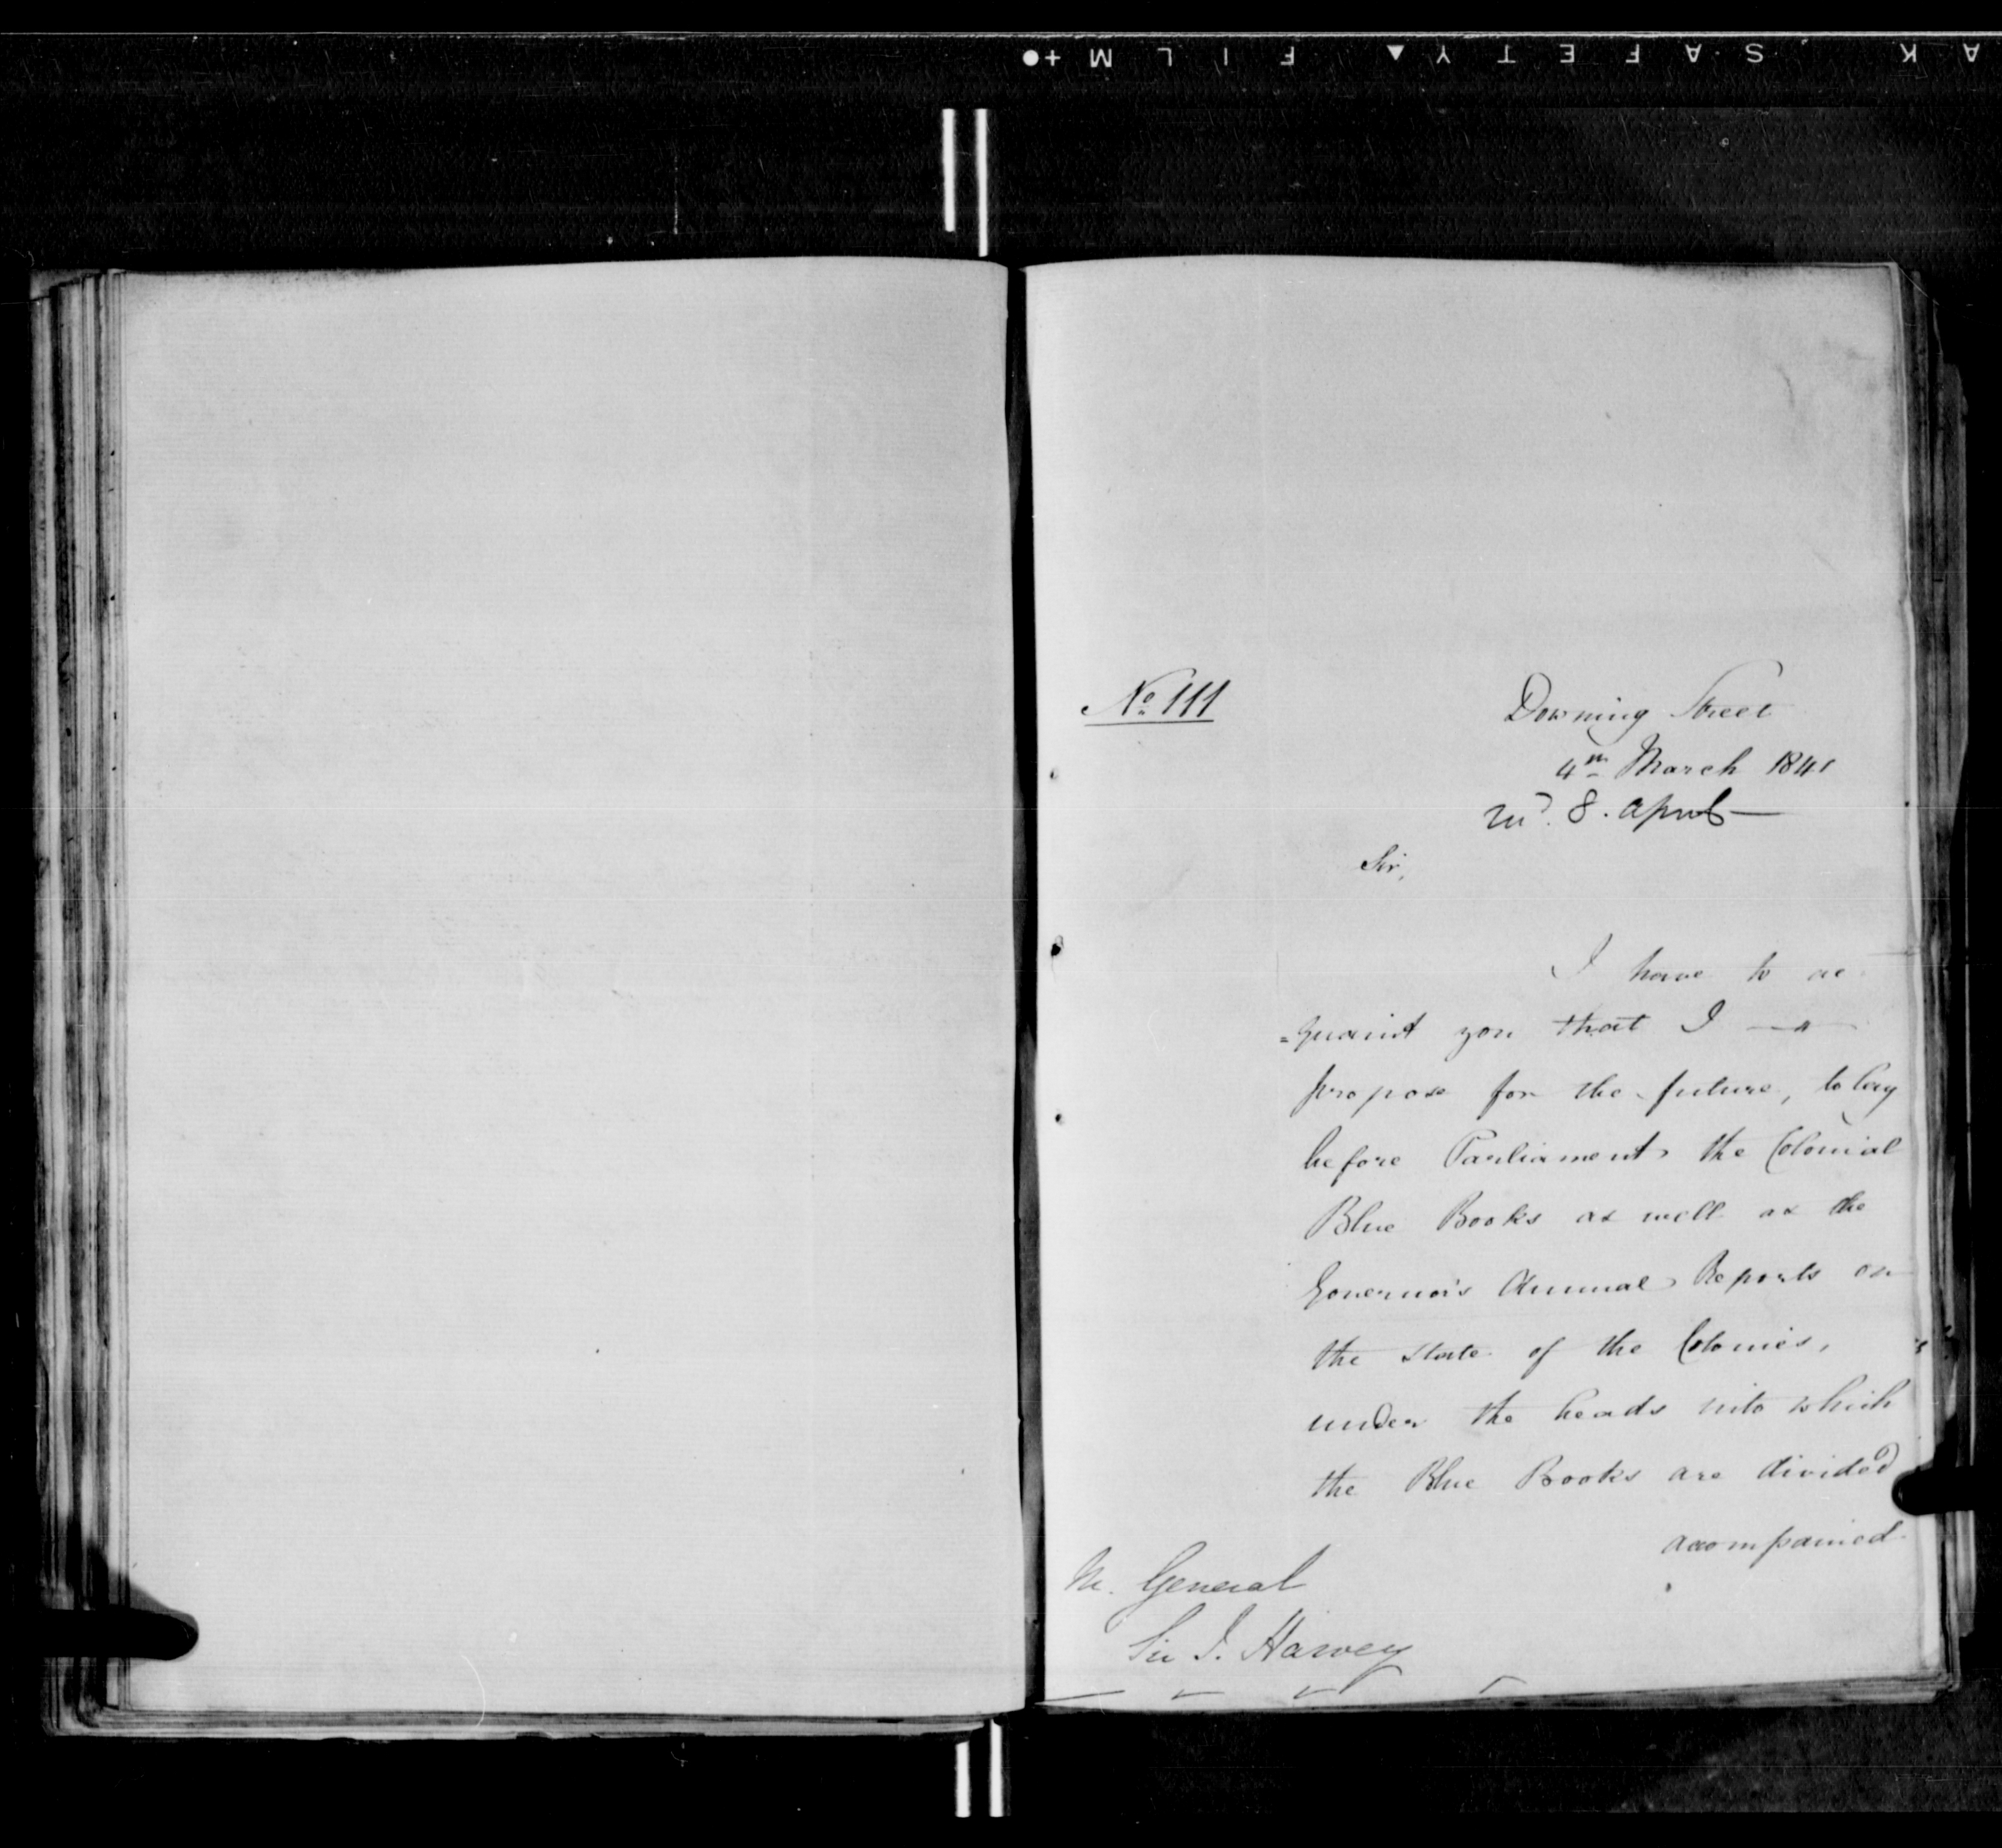 AK SAFETY▲FILM+●
No. 111
Downing Street
4th March 1841
Recd. 8. April
Sir,
I have to ac
=quaint you that I
propose for the future, to lay
before Parliament the Colonial
Blue Books as well as the
Governor's Annual Reports on
the state of the Colonies,
under the heads into which
the Blue Books are divided
accompanied
M. General
Sir J. Harvey